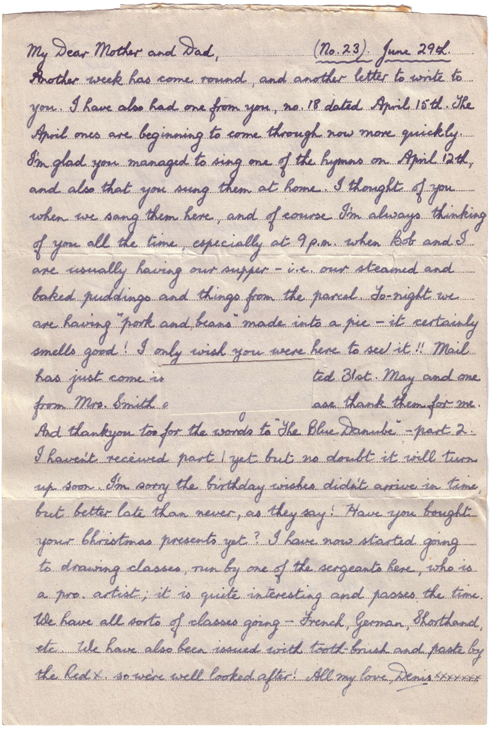 My Dear Mother and Dad, (No. 23). June 29th.
Another week has come round, and another letter to write to
you. I have also had one from you, no. 18 dated April 15th. The
April ones are beginning to come through now more quickly.
I'm glad you managed to sing one of the hymns on April 12th,
and also that you sung them at home. I thought of you
when we sang them here, and of course I'm always thinking
of you all the time, especially at 9 p.m. when Bob and I
are usually having our supper – i.e. our steamed and
baked puddings and things from the parcel. To-night we
are having "pork and beans" made into a pie – it certainly
smells good! I only wish you were here to see it!! Mail
has just come in ted 31st. May and one
from Mrs. Smith ase thank them for me.
And thankyou too for the words to "The Blue Danube" – part 2.
I haven't received part 1 yet but no doubt it will turn
up soon. I'm sorry the birthday wishes didn't arrive in time,
but better late than never, as they say! Have you bought
your Christmas presents yet? I have now started going
to drawing classes, run by one of the sergeants here, who is
a pro. artist; it is quite interesting and passes the time.
We have all sorts of classes going – French, German, Shorthand,
etc. We have also been issued with tooth-brush and paste by
the Red X. so we're well looked after! All my love, Denis xxxxxxx